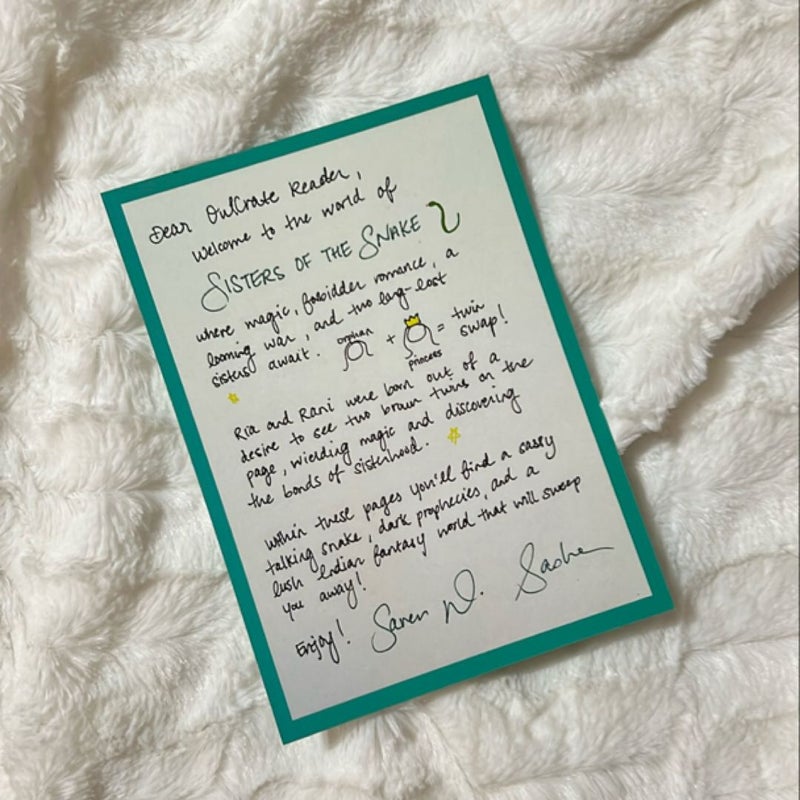 Dear OwlCrate Reader,
Welcome to the world of
SISTERS OF THE SNAKE
where magic, forbidden romance, a
looming war, and two long-lost
sisters await. orphan + princess = twin swap!
Ria and Rani were born out of a
desire to see two brown twins on the
page, wielding magic and discovering
the bonds of sisterhood.
Within these pages you'll find a sassy
talking snake, dark prophecies, and a
lush Indian fantasy world that will sweep
you away!
Enjoy!